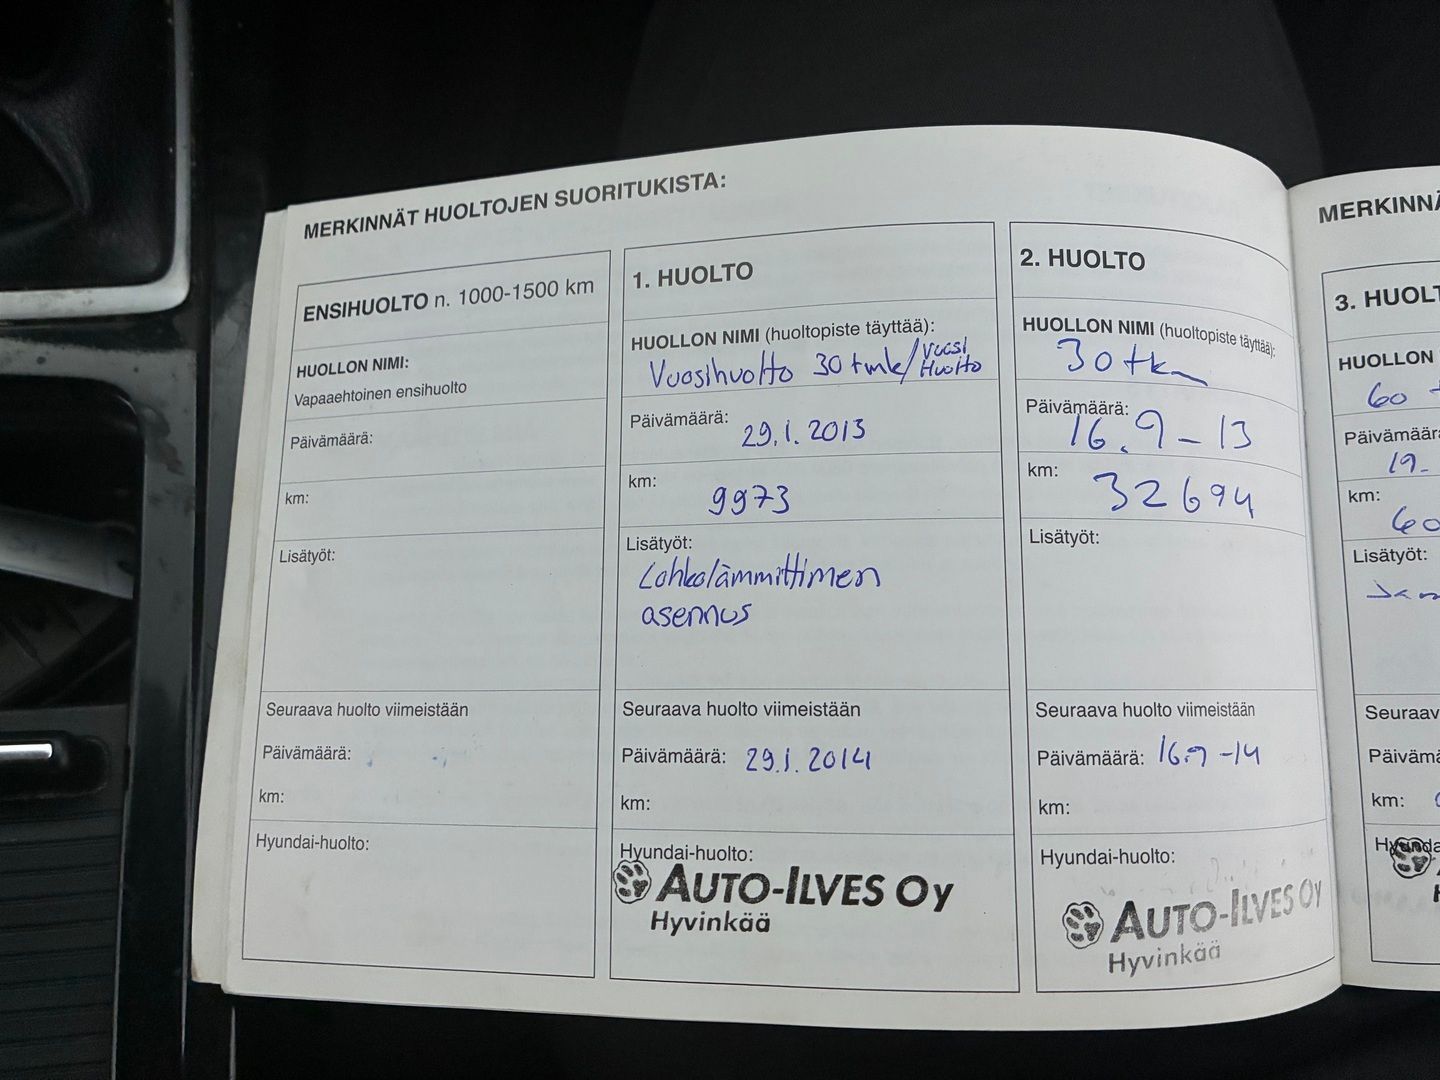 MERKINNÄT HUOLTOJEN SUORITUKISTA:
ENSIHUOLTO n. 1000-1500 km
HUOLLON NIMI:
Vapaaehtoinen ensihuolto
Päivämäärä:
km:
Lisätyöt:
Seuraava huolto viimeistään
Päivämäärä:
km:
Hyundai-huolto:
1. HUOLTO
HUOLLON NIMI (huoltopiste täyttää):
Vuosihuolto 30 tmk/Vuosi
Huolto
Päivämäärä: 29.1.2013
km: 9973
Lisätyöt:
Lohkolämmittimen
asennus
Seuraava huolto viimeistään
Päivämäärä: 29.1.2014
km:
Hyundai-huolto:
AUTO-ILVES OY
Hyvinkää
2. HUOLTO
HUOLLON NIMI (huoltopiste täyttää):
30 tkm
Päivämäärä:
16.9-13
km: 32694
Lisätyöt:
Seuraava huolto viimeistään
Päivämäärä: 16.9-14
km:
Hyundai-huolto:
AUTO-ILVES OY
Hyvinkää
MERKINNÄ
3. HUOLT
HUOLLON
60
Päivämäärä
19-
km:
60
Lisätyöt:
Seuraav
Päivämä
km:
Hyunda